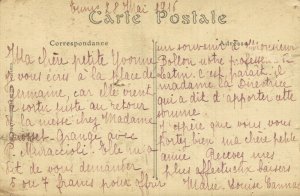 Tunis 28 Mai 1916
Carte Postale
Correspondance
Adresse
Ma chère petite Yvonne
vous écris à la place de
Germaine, car elle vient
sortir juste au retour
la messe chez Madame
Grange avec
Muraccioli. Elle m'a
dit de vous demander
5 ou 7 francs pour offrir
un souvenir à Monsieur
notre profess
latin. C'est paraît-il
madame la Directrice
qui a dit d'apporter cette
somme.
J'espère que vous vous
portez bien ma chère petite
amie. Recevez mes
plus affectueux baisers
Marie-Louise